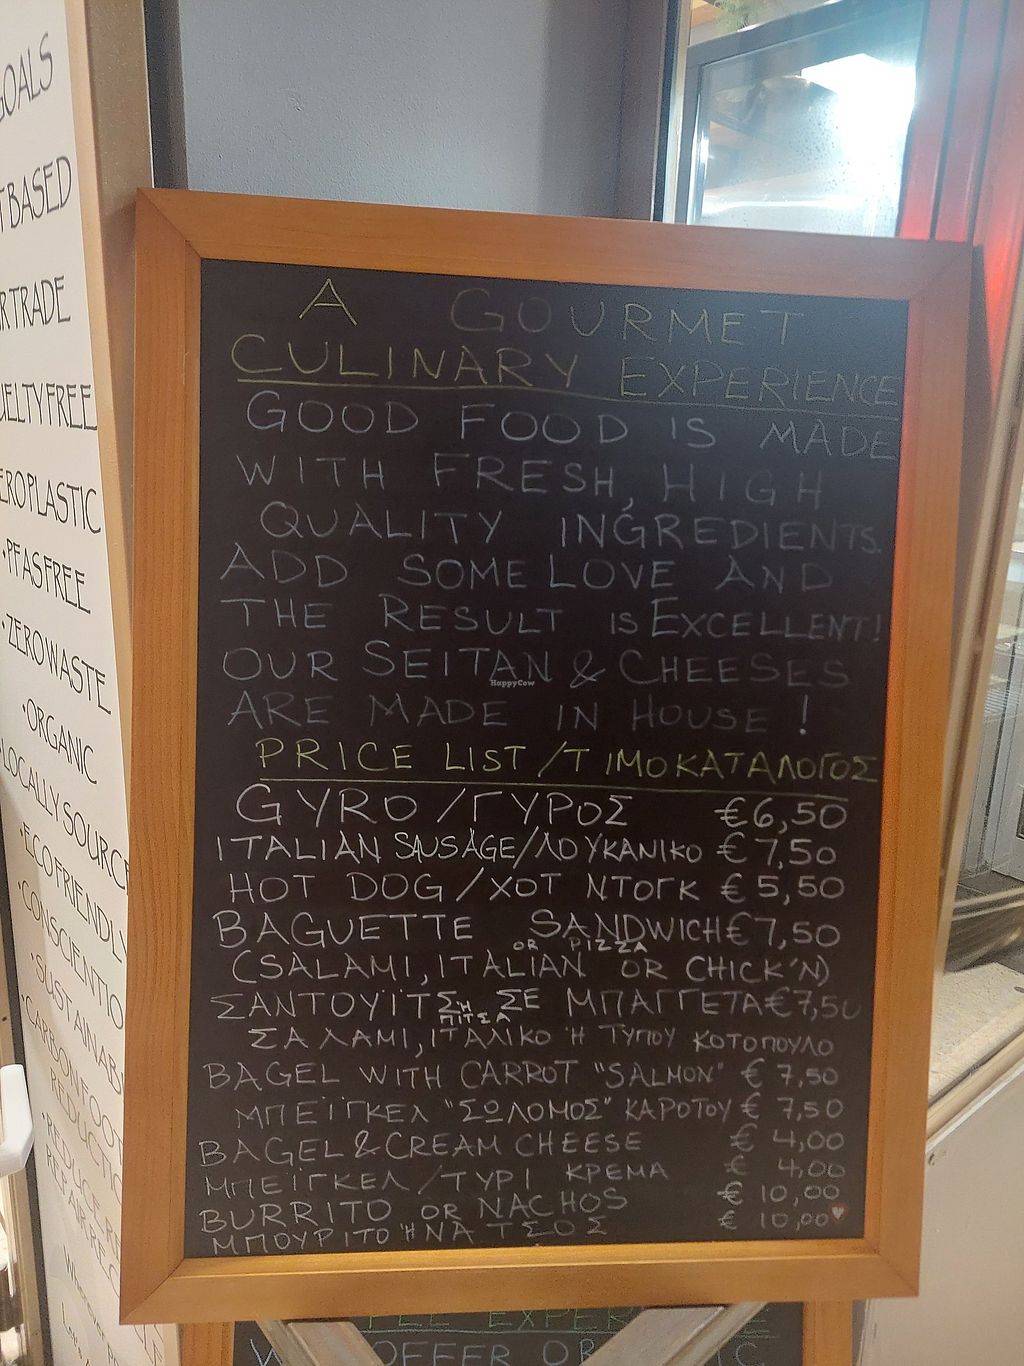 GOALS
TBASED
RTRADE
UELTYFREE
EROPLASTIC
·PFASFREE
·ZEROWASTE
·ORGANIC
LOCALLYSOURCE
·ECOFRIENDLY
CONSCIENTIO
·SUSTAINAB
·CARBONFOOT
REDUCTIO
·REDUCE
REPAIR
A GOURMET
CULINARY EXPERIENCE
GOOD FOOD IS MADE
WITH FRESH, HIGH
QUALITY INGREDIENTS.
ADD SOME LOVE AND
THE RESULT IS EXCELLENT!
OUR SEITAN & CHEESES
HappyCow
ARE MADE IN HOUSE!
PRICE LIST/ΤΙΜΟΚΑΤΑΛΟΓΟΣ
GYRO/ΓΥΡΟΣ €6,50
ITALIAN SAUSAGE/ΛΟΥΚΑΝΙΚΟ €7,50
HOT DOG/ΧΟΤ ΝΤΟΓΚ €5,50
BAGUETTE SANDWICH €7,50
OR PIZZA
(SALAMI, ITALIAN OR CHICK'N)
ΣΑΝΤΟΥΪΤΣ ΣΕ ΜΠΑΓΓΕΤΑ €7,50
Ή ΠΙΤΣΑ
ΣΑΛΑΜΙ, ΙΤΑΛΙΚΟ Ή ΤΥΠΟΥ ΚΟΤΟΠΟΥΛΟ
BAGEL WITH CARROT "SALMON" €7,50
ΜΠΕΪΓΚΕΛ "ΣΩΛΟΜΟΣ" ΚΑΡΟΤΟΥ €7,50
BAGEL & CREAM CHEESE €4,00
ΜΠΕΪΓΚΕΛ/ΤΥΡΙ ΚΡΕΜΑ €4,00
BURRITO OR NACHOS €10,00
ΜΠΟΥΡΙΤΟ Ή ΝΑΤΣΟΣ €10,00
OFFER